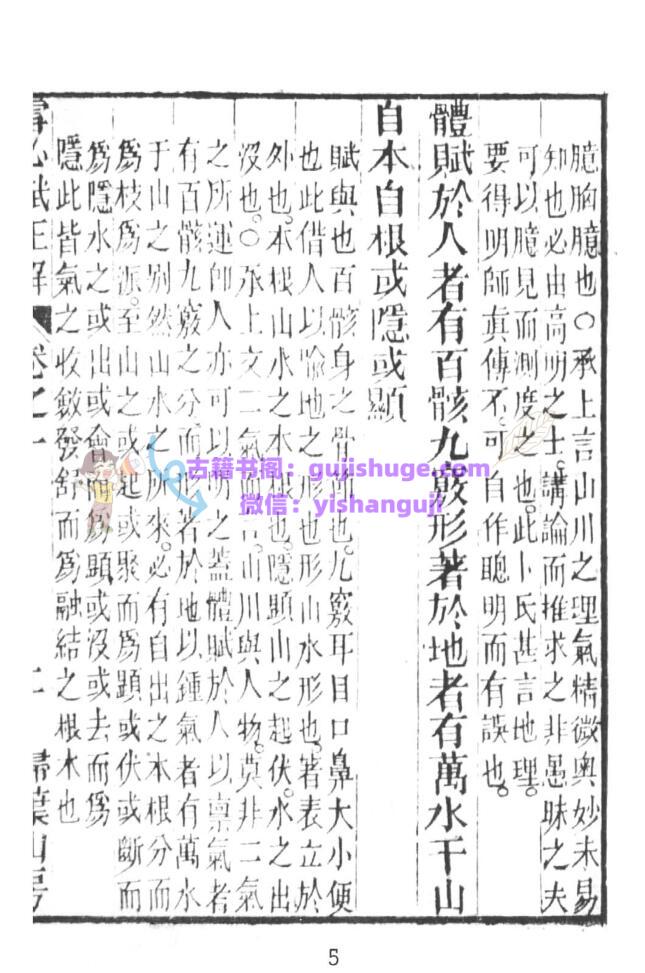 臆胸臆也○承上言山川之理氣精微奧妙未易
知也必由高明之士講論而推求之非愚昧之夫
可以臆見而測度之也此卜氏甚言地理
要得明師眞傳不可自作聰明而有誤也
體賦於人者有百骸九竅形著於地者有萬水千山
自本自根或隱或顯
賦與也百骸身之骨也九竅耳目口鼻大小便
也此借人以喻地之形也形山水形也著表立於
外也本根山水之本也隱顯山之起伏水之出
沒也○承上文二氣山川與人物莫非二氣
之所運卽人亦可以明之蓋體賦於人以禀氣者
有百骸九竅之分而著於地以鍾氣者有萬水
于山之別然山水之所來必有自出之本根分而
爲枝爲派至山之或起或聚而爲顯或伏或斷而
爲隱水之或出或會而爲顯或沒或去而爲
隱此皆氣之收斂發舒而爲融結之根木也
雪心賦正解 卷之一 二 掃葉山房
古籍书阁:gujishuge.com
微信:yishanguji
5